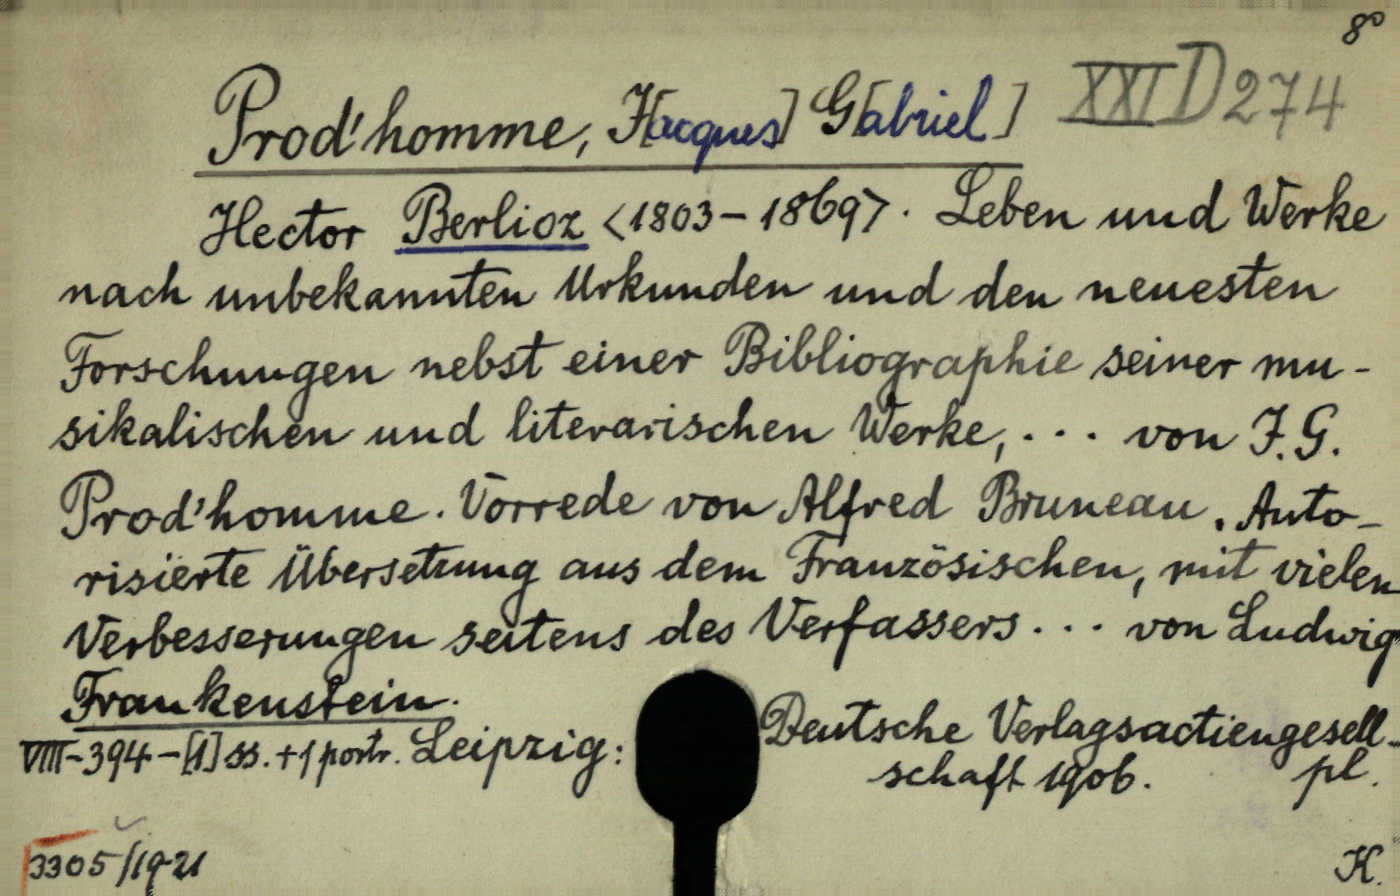 8°
Prod'homme, J[acques] G[abriel] XXI D 274
Hector Berlioz <1803-1869>. Leben und Werke
nach unbekannten Urkunden und den neuesten
Forschungen nebst einer Bibliographie seiner mu-
sikalischen und literarischen Werke, ... von J. G.
Prod'homme. Vorrede von Alfred Bruneau. Auto-
risierte Übersetzung aus dem Französischen, mit vielen
Verbesserungen seitens des Verfassers ... von Ludwig
Frankenstein.
VIII-394-[1] ss. + 1 portr. Leipzig: Deutsche Verlagsactiengesell-
schaft 1906. pl.
3305/1921
K.